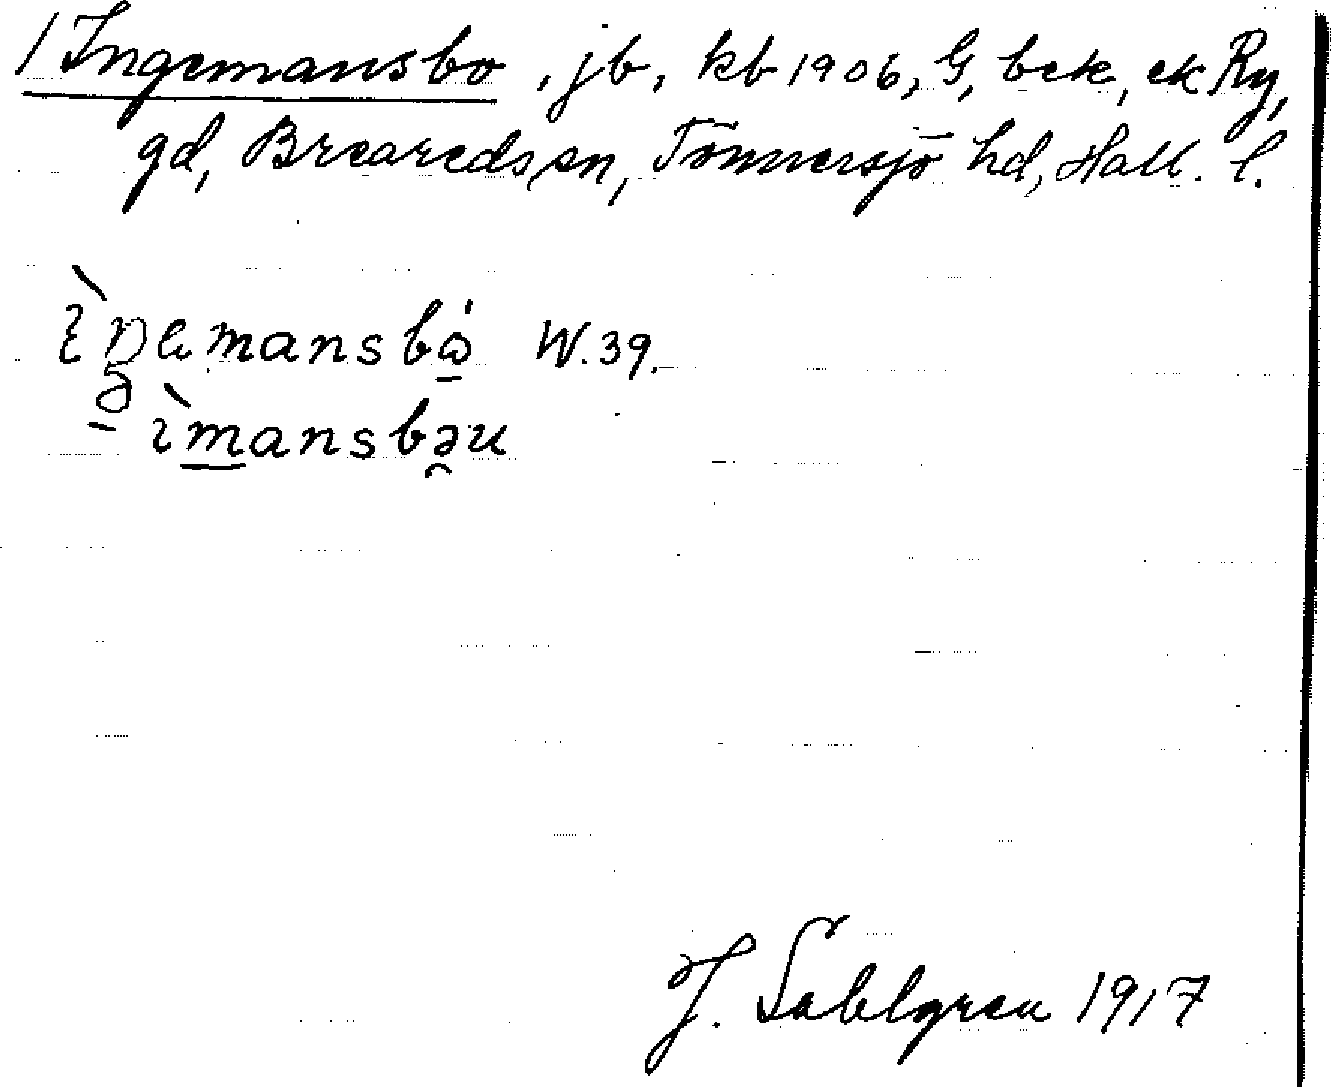 / Ingemansbo, jb, kb 1906, G, bek, ek Ry,
gd, Breareds sn, Tönnersjö hd, Hall. l.
W. 39.
ìmansbə̯u
J. Sahlgren 1917